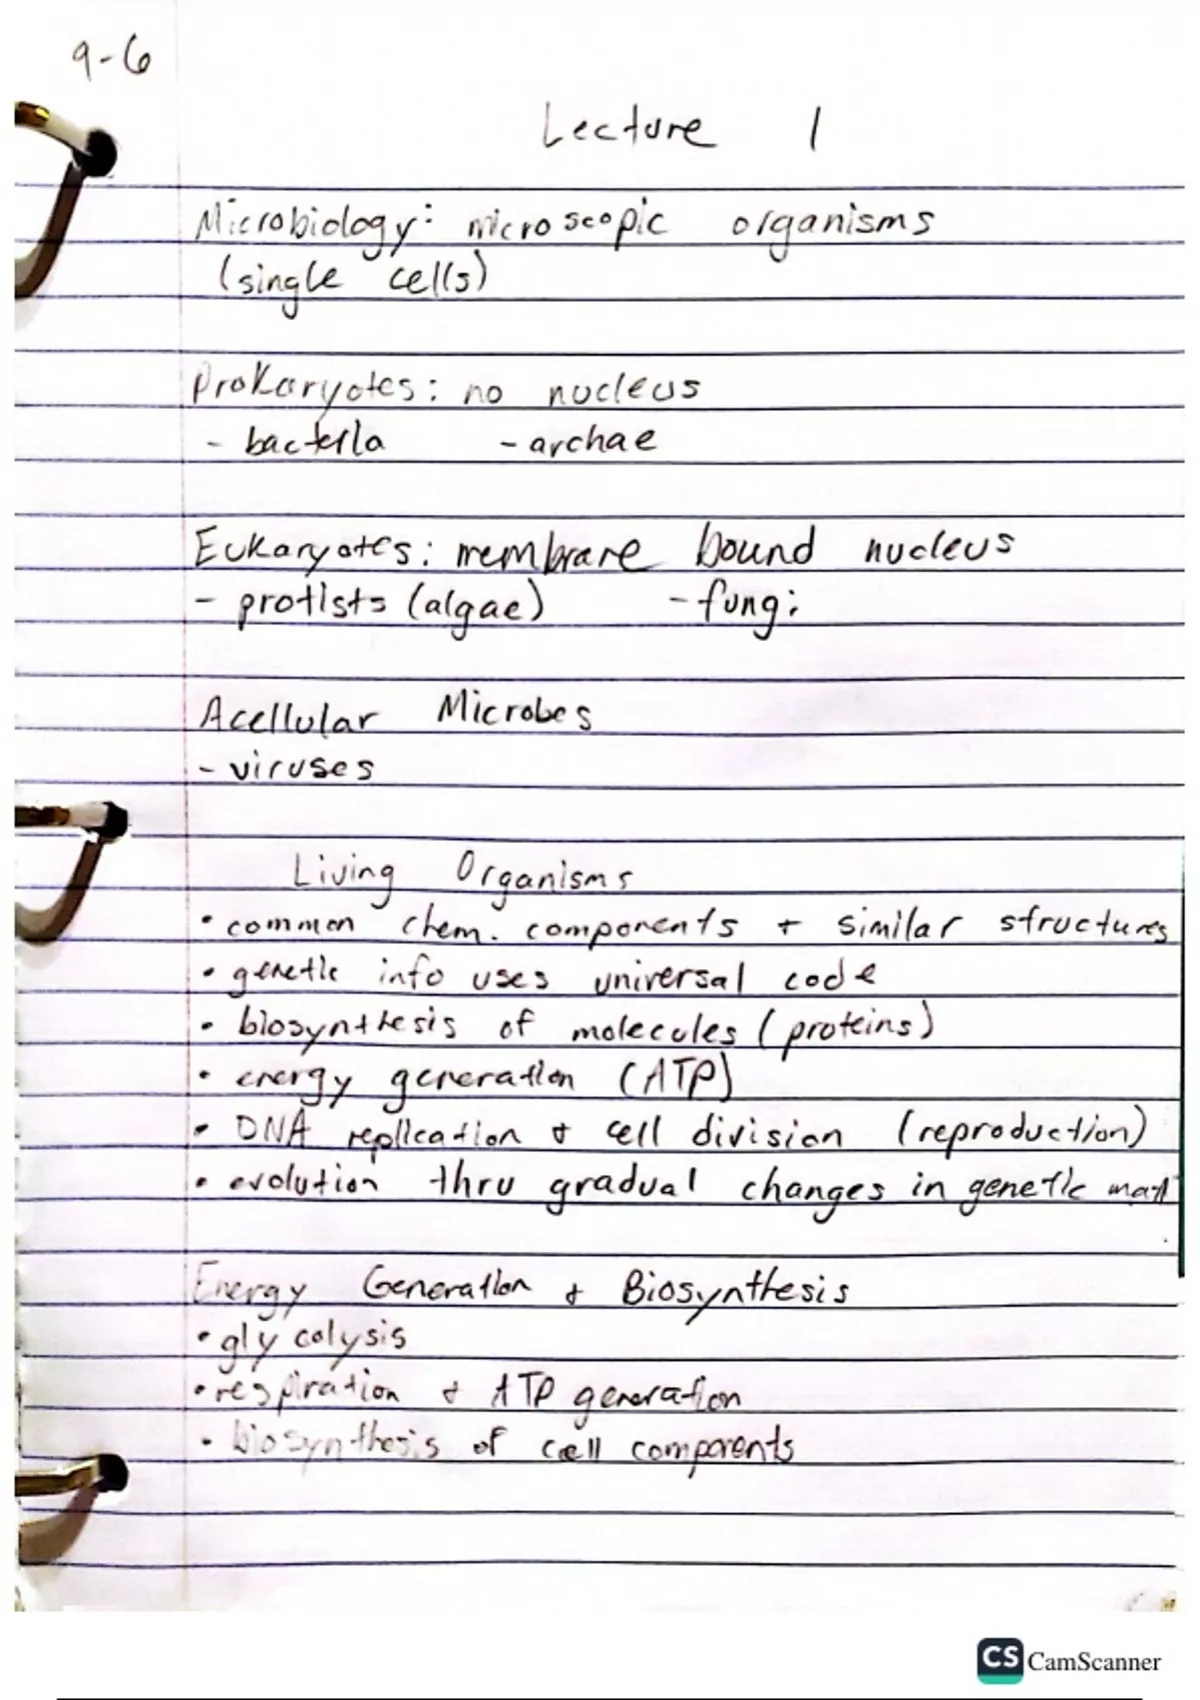 9-6
Lecture 1
Microbiology: microscopic organisms
(single cells)
Prokaryotes: no nucleus
- bacteria - archae
Eukaryotes: membrane bound nucleus
- protists (algae) - fungi
Acellular Microbes
- viruses
Living Organisms
• common chem. components + similar structures
• genetic info uses universal code
• biosynthesis of molecules (proteins)
• energy generation (ATP)
• DNA replication + cell division (reproduction)
• evolution thru gradual changes in genetic mat'l
Energy Generation + Biosynthesis
• glycolysis
• respiration + ATP generation
• biosynthesis of cell components
CS CamScanner